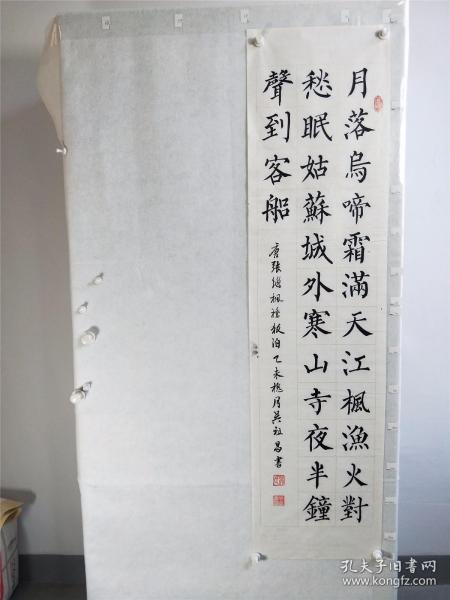 月落烏啼霜滿天江楓漁火對
愁眠姑蘇城外寒山寺夜半鐘
聲到客船
唐張繼楓橋夜泊乙未槐月吳祖昌書
孔夫子旧书网
www.kongfz.com